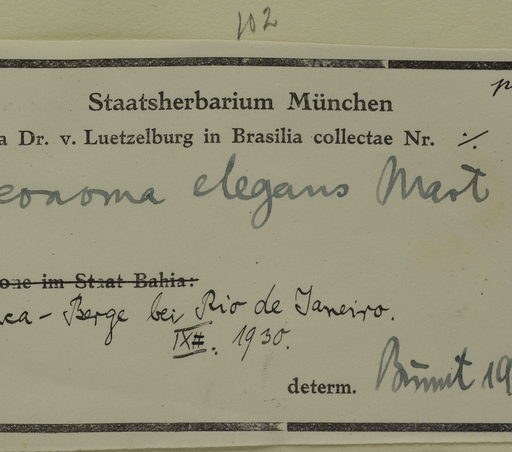 102
Staatsherbarium München
a Dr. v. Luetzelburg in Brasilia collectae Nr. ./.
eonoma elegans Mart
one im Staat Bahia:
uca - Berge bei Rio de Janeiro.
IX. 1930.
determ. Burret 19